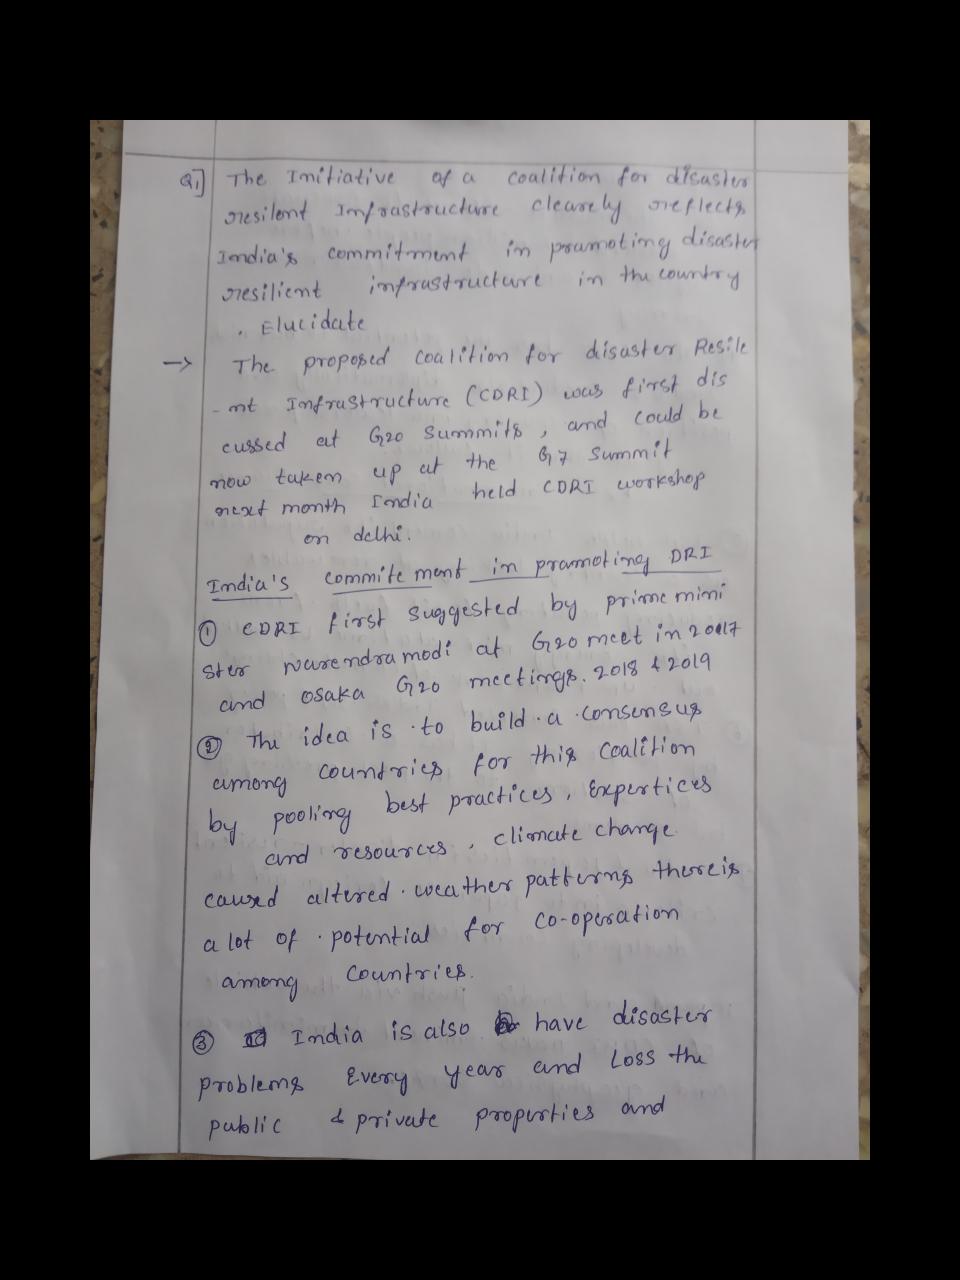 Q1] The Initiative of a coalition for disaster
resilent Infrastructure clearely reflects
India's commitment in pramoting disaster
resilient infrastructure in the country
. Elucidate
→ The proposed coalition for disaster Resile
- nt Infrastructure (CDRI) was first dis
cussed at G20 Summits, and could be
now taken up at the G7 Summit
next month India held CDRI workshop
on delhi.
India's commitement in pramoting DRI
① CDRI first suggested by prime mini
ster narendra modi at G20 meet in 2017
and osaka G20 meetings. 2018 & 2019
② The idea is to build a consensus
among countries for this coalition
by pooling best practices, Expertices
and resources, climate change
caused altered weather patterns there is
a lot of potential for co-operation
among Countries.
③ India is also have disaster
problems Every year and Loss the
public & private properties and